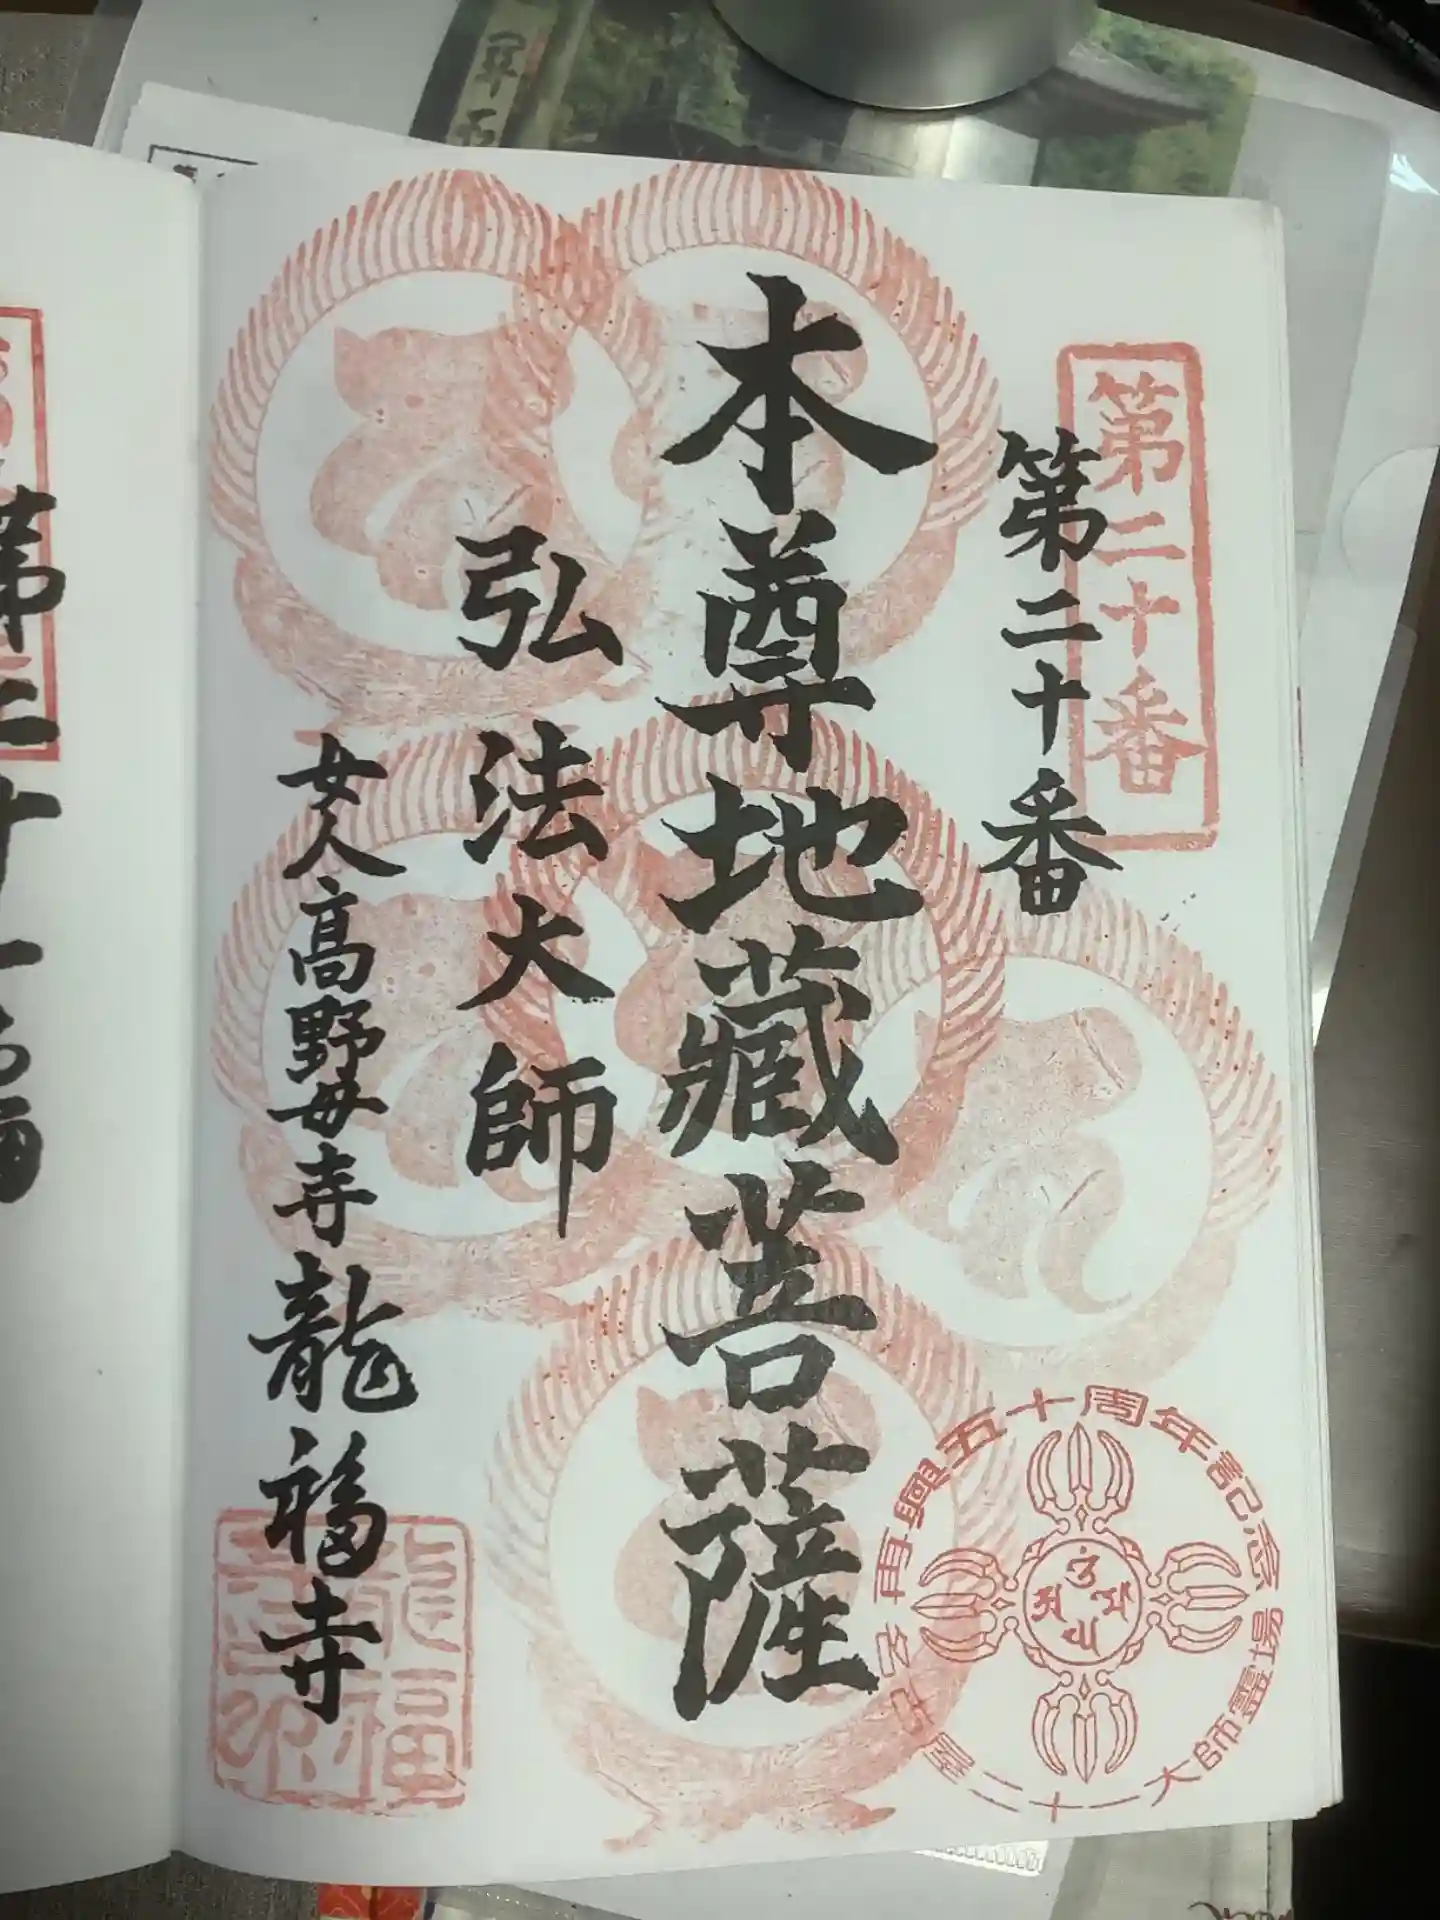 第二十番
第二十番
本尊地藏菩薩
弘法大師
女人高野毋寺龍福寺
再興五十周年記念
二十一大師霊場
龍福
寺印